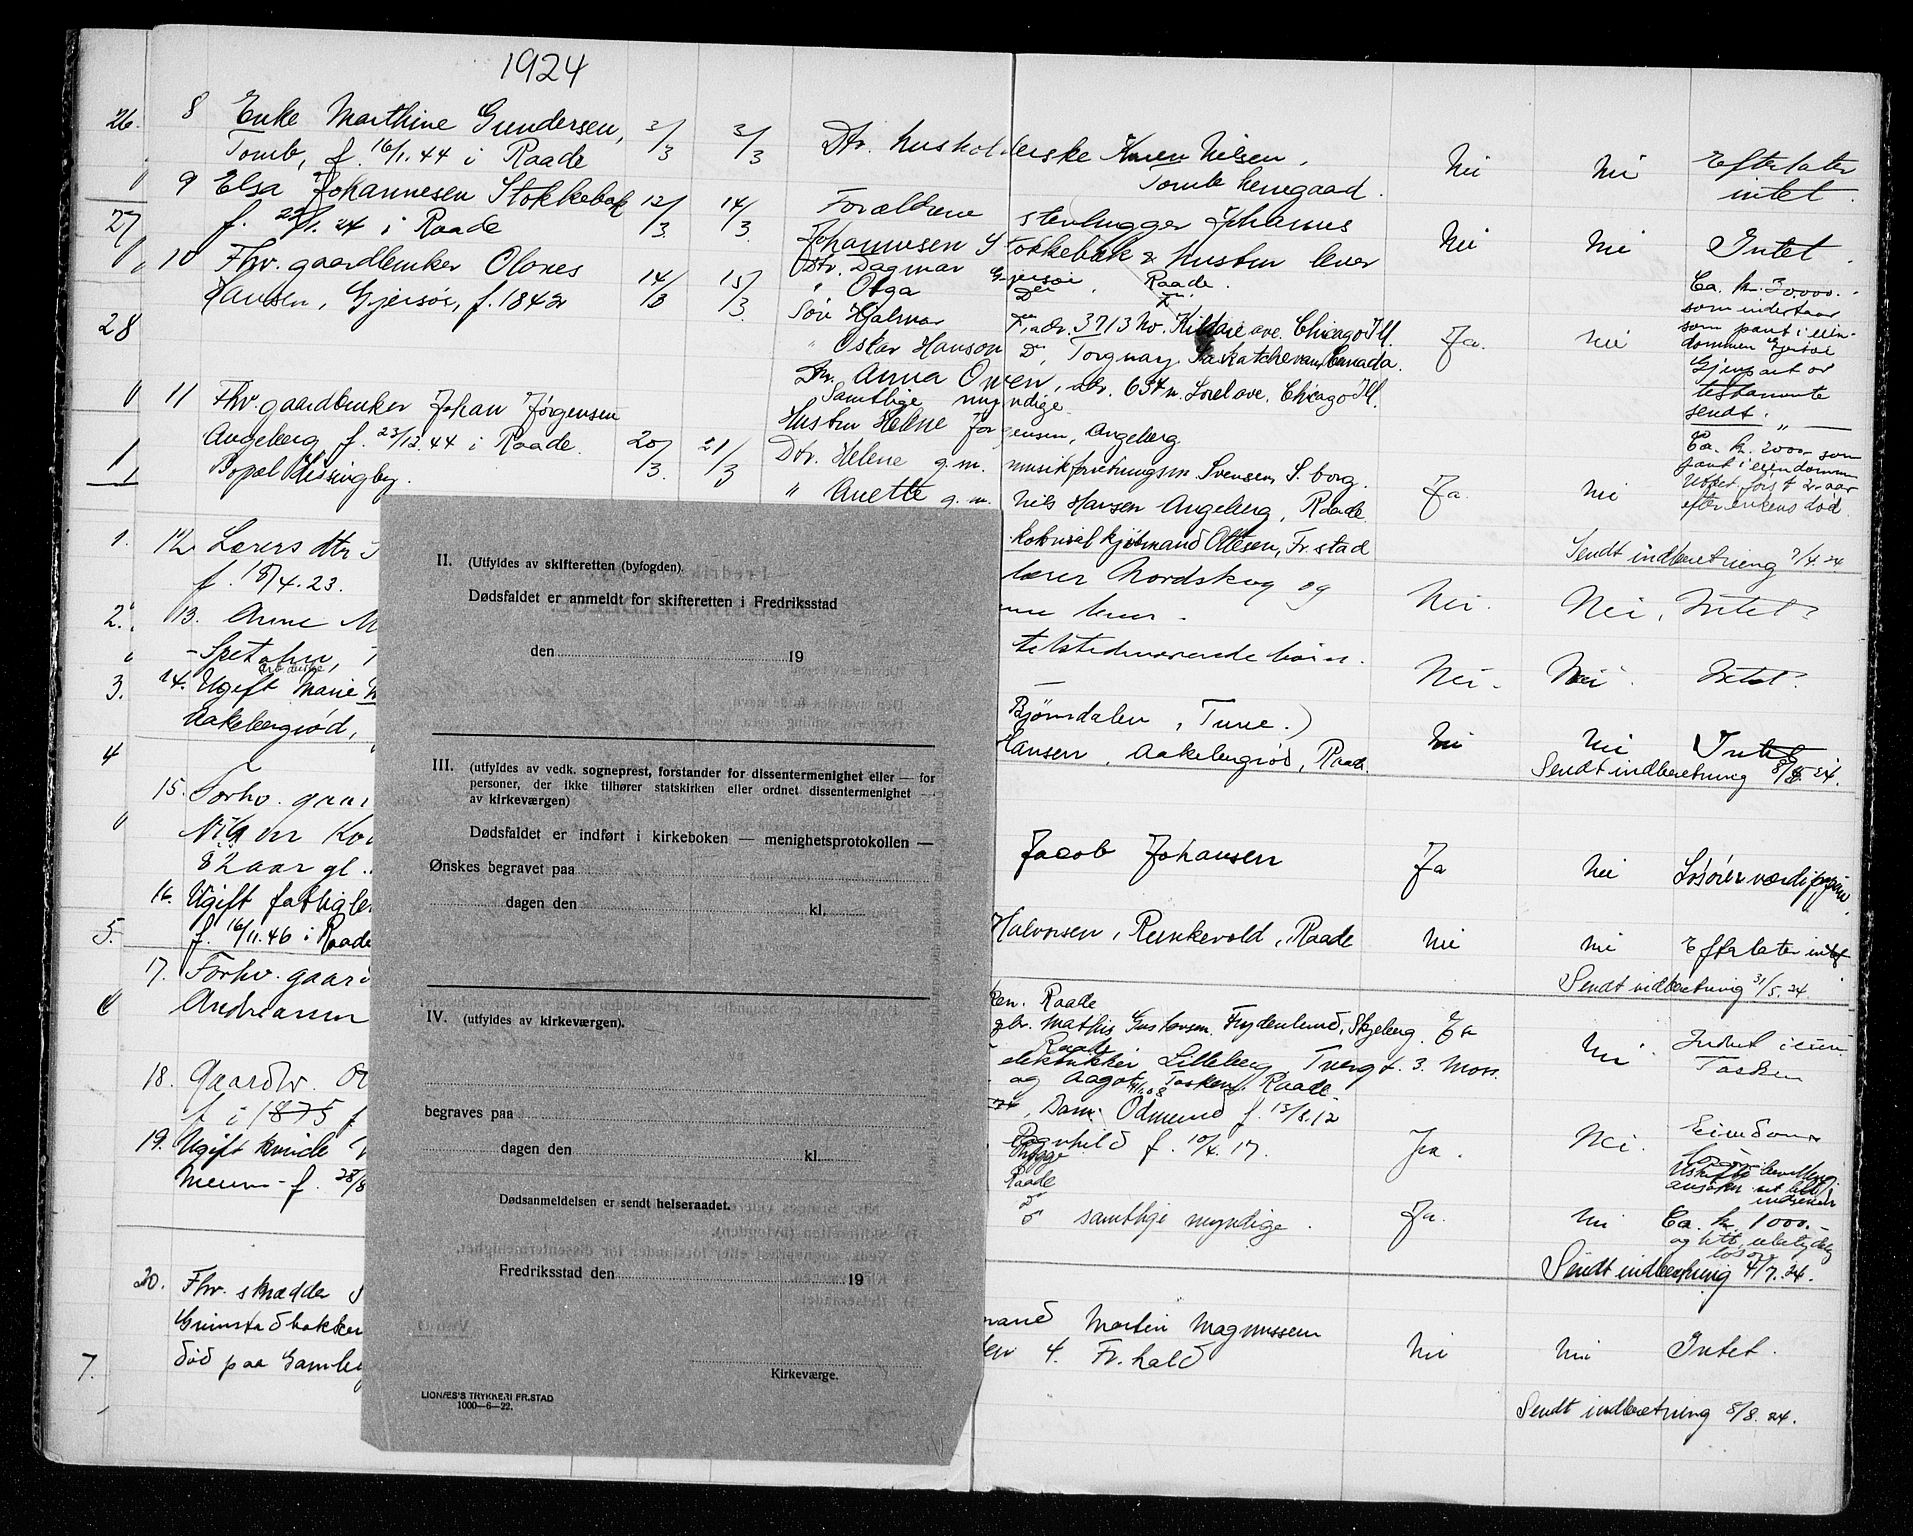 1924
26. 8 Enke Marthine Gundersen, 2/3 3/3 Dtr. hushol derske Karen Nilsen. Nei Nei Efterlater
Tomb, f. 16/1.44 i Raade Tomb herregaard. intet.
9 Elsa Johannesen Stokkebæk 12/3 14/3 Forældrene stenhugger Johannes
27 f. 1.24 i Raade Johannesen Stokkebæk & hustru lever Nei Nei Intet.
10 Fhv. gaardbruker Olaves 14/3 15/3 Dtr. Dagmar Gjersøe Raade. Ca. kr. 30,000.-
Hansen, Gjersøe, f. 1842 " Olga Do som indestaar
28 Søn Hjalmar adr. 3713 No. Kildare ave. Chicago Ill. Ja. Nei som pant i eien-
" Oskar Hanson Do, Torquay Saskatchevan, Canada. dommen Gjersøe
Dtr. Anna Owen, adr. 654 n. Lorel ave. Chicago Ill. Gjenpart av
Samtlige myndige. testamente
sendt.
11 Fhv. gaardbruker Johan Jørgensen 20/3 21/3 Hustru Helene Jørgensen, Angeberg
Angeberg f. 23/12.44 i Raade. Dtr. Helene g.m. musikforretningsm. Svensen, S.borg. Ca. kr. 2000,- som
1 Bopæl Missingby. " Anette g.m. Nils Hansen Angeberg, Raade Ja. Nei pant i eiendommen
efter enkens død
1. 12 Lærers dtr kjøbmand Ottesen, Fr.stad Sendt indberetning 7/4.24
f. 18/4.23. lærer Nordskog og Nei. Nei. Intet.
lever.
2. 13. Anne M tilstedeværende børn. Nei. Nei. Intet.
Spetalen,
3. 14. Ugift Marie Bjørnsdalen, Tune.)
Aakebergrød, Hansen, Aakebergrød, Raade Nei Nei Intet
4 Sendt indberetning 8/5.24.
15. Forhv. gaar
Nilsen Jacob Johansen Ja Nei Løsøre
82 aar gl.
16. Ugift fattiglem Halvorsen, Runkevold, Raade Nei Nei Efterlater intet
5. f. 16/11.46 i Raade Sendt indberetning 31/5.24.
17. Forhv. gaard Raade
6 gbr. Mathis Gustavsen Frydenlund, Skjeberg. Ja Nei. Indset i
elektriker Lilleberg, Tverg t. 3. Moss. Tasken
18. Gaardbr. og Aagot Tasken Raade
f i 1875 Odmund f. 13/8.12 Eiendom
19. Ugift kvinde Ragnhild f. 10/4.17. Ja. Nei.
f. 28/8 Rygge
Raade
samtlige myndige. Ja. Nei Ca. kr. 1000.-
og litt ubetydelig
løsøre
Sendt indberetning 4/7.24.
20. Fhv. skrædder Martin Magnussen Nei Nei Intet.
Grimstadbakken 4. Fr.hald
7. død paa Gamle
Sendt indberetning 8/8.24.
II. (Utfyldes av skifteretten (byfogden).
Dødsfaldet er anmeldt for skifteretten i Fredriksstad
den 19
III. (utfyldes av vedk. sogneprest, forstander for dissentermenighet eller — for
personer, der ikke tilhører statskirken eller ordnet dissentermenighet —
av kirkeværgen)
Dødsfaldet er indført i kirkeboken — menighetsprotokollen —
Ønskes begravet paa
dagen den kl.
IV. (utfyldes av kirkeværgen).
begraves paa
dagen den kl.
Dødsanmeldelsen er sendt helseraadet.
Fredriksstad den 19
Kirkeværge.
LIONÆS'S TRYKKERI FR.STAD
1000—6—22.